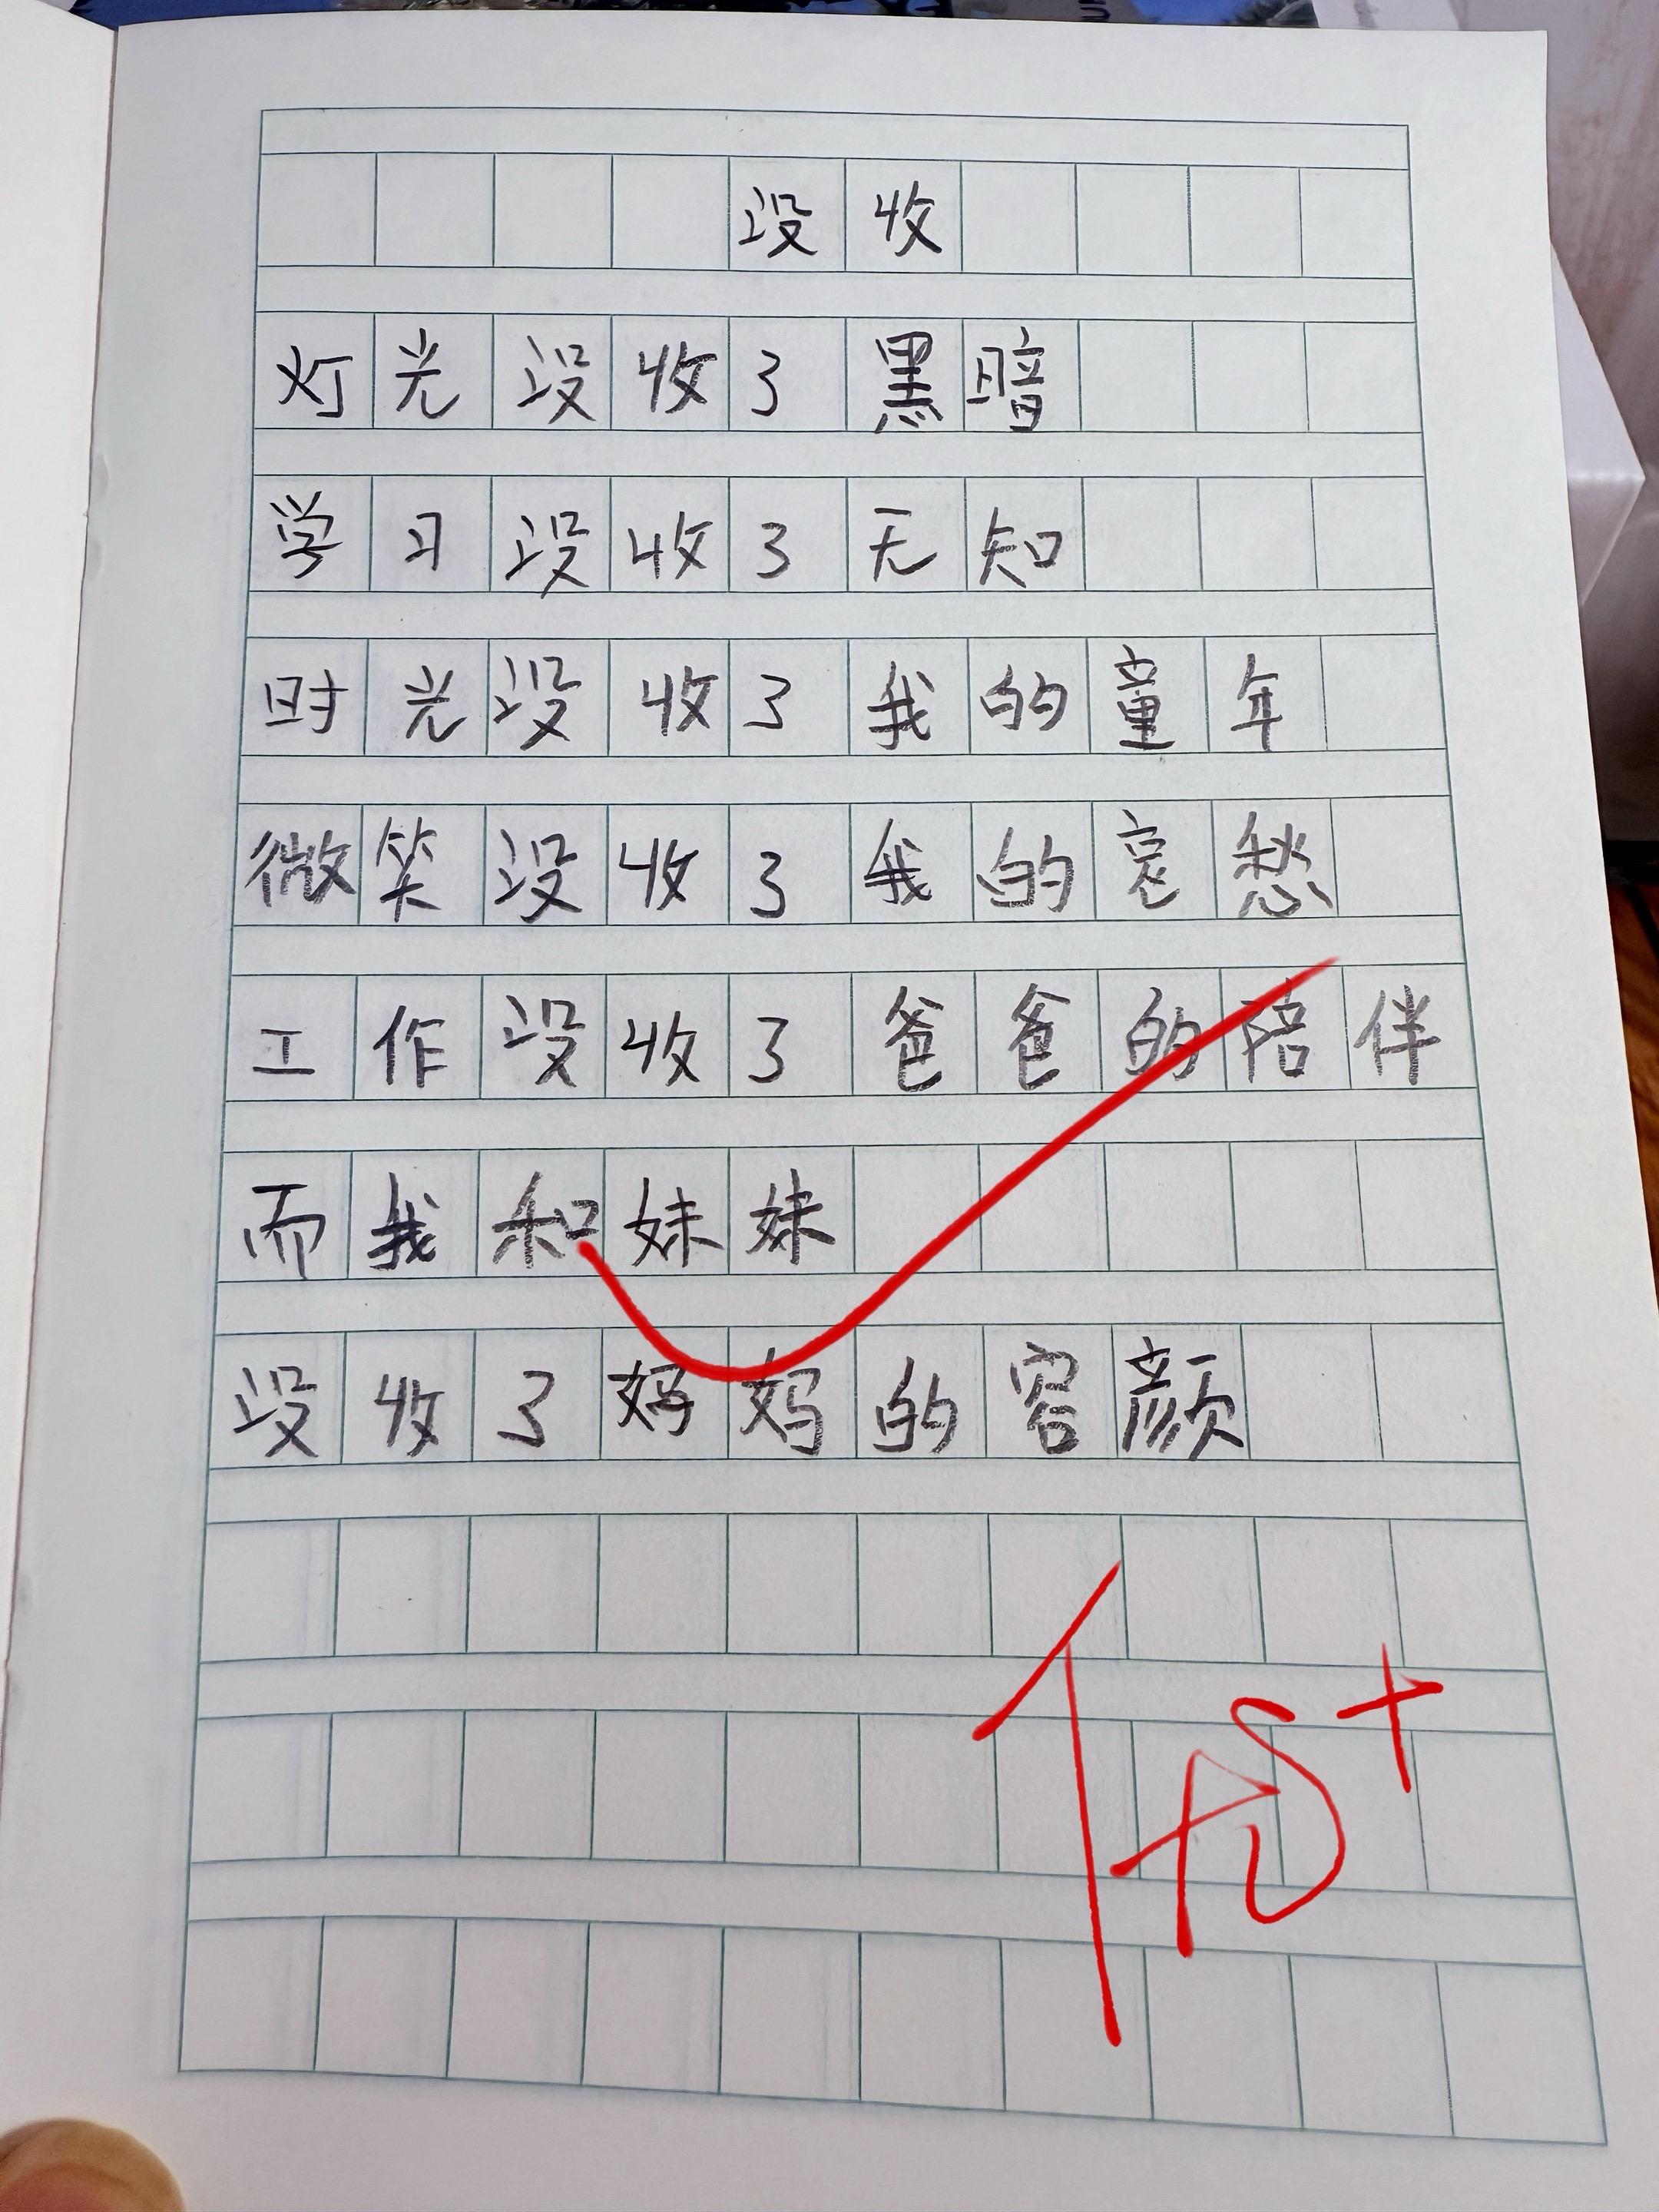 没收
灯光没收了黑暗
学习没收了无知
时光没收了我的童年
微笑没收了我的哀愁
工作没收了爸爸的陪伴
而我和妹妹
没收了妈妈的容颜